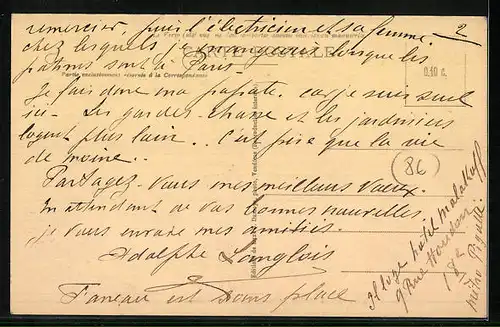 remercier, puis l'électricien et sa femme. 2
chez lesquels je mangeais lorsque les
patrons sont à Paris -
CARTE POSTALE
Partie exclusivement réservée à la Correspondance
0.10 c.
Je fais donc ma popote. car je suis seul
ici - Les gardes-chasse et les jardiniers
logent plus loin.. C'est pire que la vie
de moine..
(86)
Partagez-vous mes meilleurs vœux.
En attendant de vos bonnes nouvelles.
je vous envoie mes amitiés.
Adolphe Langlois
Faneau est sans place
Il loge hôtel Malakoff
9 Rue Houdon
18e
métro Pigalle